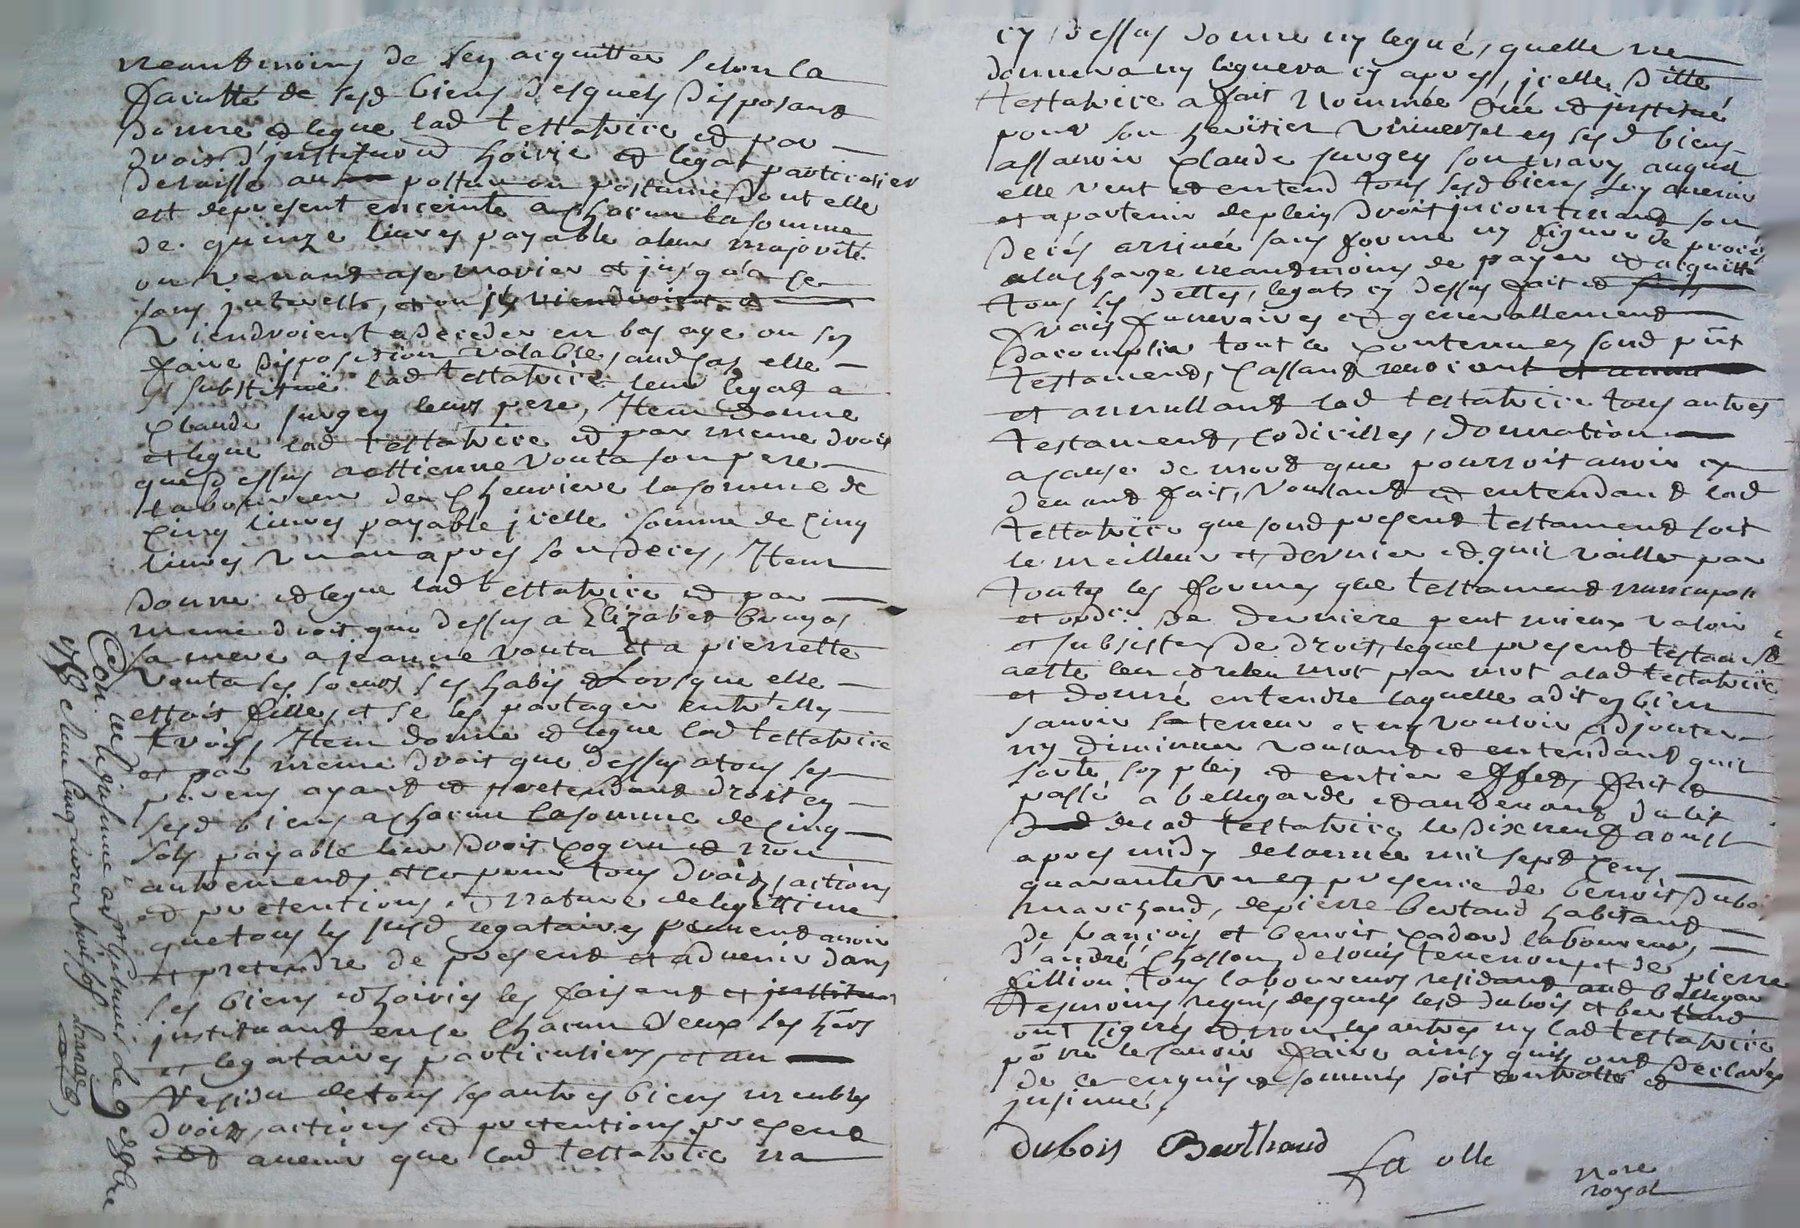 neantmoins de s'en aiquitter selon la
faculté de sesd biens desquels disposant
donne et legue lad testatrice et par
droit d'institution d'hoirie et legat particulier
delaisse au postum ou postume dont elle
est depresent enceinte a chacun la somme
de quinze livres payable a leur majorité
ou venant a se marier et jusqu'a ce
sans interests, et ou ils viendroient a
viendroient a deceder en bas age ou sy
faire disposition valable, aud cas elle
substitue lad testatrice leur legat a
Claude Surgey leurs pere, Item donne
et legue lad testatrice et par meme droit
que dessus a Ettienne Vouta son pere
laboureur de Cheuriere la somme de
cinq livres payable icelle somme de cinq
livres un an apres son deces, Item
donne et legue lad testatrice et par
meme droit que dessus a Elizabet bruyas
sa mere a jeanne vouta et a pierrette
vouta ses soeurs ses habis de lorsque elle
estoit fille, et se les partager entr'elles
trois, Item donne et legue lad testatrice
et par meme droit que dessus a tous ses
parens ayant et pretendant droit en
sesd biens a chacun la somme de cinq
sols payable leur droit cognu et non
autrement, et ce pour tous droits, actions
et pretentions et nature de legittime
que tous les susd legataires peuvent avoir
et pretendre de present et advenir dans
ses biens et hoiries les faisant et instituant
instituant en ce chacun d'eux ses hers
et legataires particuliers, et au
Residu de tous ses autres biens meubles
droits, actions et pretentions present
et avenir que lad testatrice n'a
1758
cy dessus donné ny legué, quelle ne
donnera ny leguera cy apres, icelle ditte
testatrice a fait nommée Créé et institué
pour son heritier universel en sesd biens
assavoir Claude Surgey son mary auquel
elle veut et entend tous sesd biens luy avenir
et apartenir de plein droit incontinant son
deces arrivée sans forme ny figure de proces
a la charge neantmoins de payer et aiquitter
tous ses dettes, legats cy dessus fait et
frais funeraires et generallement
d'acomplir tout le contenu en sond put
testament, cassant revocant
et annullant lad testatrice tous autres
testament, codicilles, donnation
a cause de mort que pourroit avoir cy
devant fait, voulant et entendant lad
testatrice que sond present testament soit
le meilleur et dernier et quil vaille par
toutes les formes que testament nuncupati
et ordre de derniere peut mieux valoir
et subsister de droit, lequel present testament
a ette leu et releu mot par mot a lad testatrice
et donné entendre laquelle a dit en bien
sauoir la teneur et ny vouloir adjouter
ny diminuer voulant et entendant quil
sorte son plein et entier effet, fait et
passé a bellegarde et au devant du lit
de lad testatrice le dix neuf aoust
apres midy de l'année mil sept cens
quarante un en presence de benoit Dubois
marchand, de pierre bertaud habitant
de françois et benoit Cadord laboureurs,
d'andré Chosson, de louis tevenon et de pierre
fillion tous laboureurs residant aud bellegarde
tesmoins requis desquels lesd dubois et bertaud
ont signés et non les autres ny lad testatrice
po ne le savoir faire ainsy quils ont declarés
de ce enquis et sommés soit controllé et
insinué,
Dubois Berthaud
Nore
royal